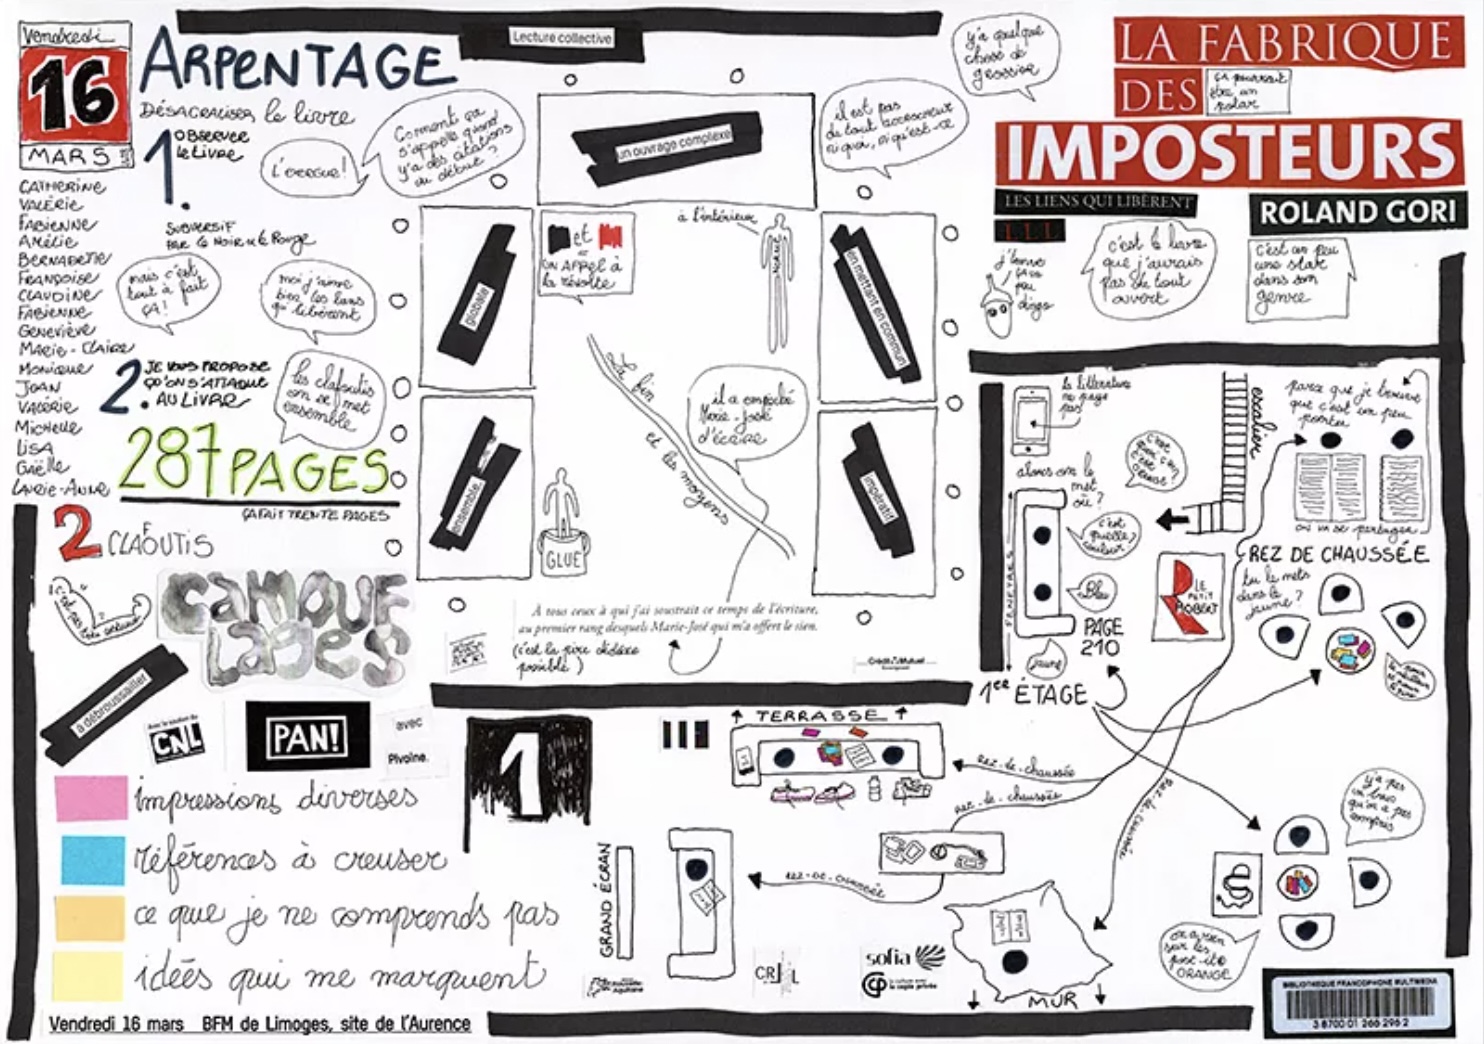 Vendredi
16
MARS
ARPENTAGE
Désacraliser le livre
1.
observer
le livre
L'exergue!
Comment ça
s'appelle quand
y'a des citations
au début ?
SUBVERSIF
PAR le Noir le Rouge
mais c'est
tout à fait
ça!
moi j'aime
bien les liens
qui libèrent
CATHERINE
VALÉRIE
FABIENNE
Amélie
BERNADETTE
FRANÇOISE
CLAUDINE
FABIENNE
Geneviève
MARIE-CLAIRE
Monique
JOAN
VALÉRIE
Michelle
LISA
Gaëlle
LAURIE-ANNE
2.
JE VOUS PROPOSE
QU'ON S'ATTAQUE
AU LIVRE
les clafoutis
on se met
ensemble
287 PAGES
ÇA FAIT TRENTE PAGES
2 CLAFOUTIS
CAMOUF
Lages
à débroussailler
Avec le soutien du
CNL
PAN!
avec
Pivoine.
impressions diverses
références à creuser
ce que je ne comprends pas
idées qui me marquent
Vendredi 16 mars BFM de Limoges, site de l'Aurence
Lecture collective
un ouvrage complexe
globale
ensemble,
en mettant en commun
impératif
et
=
UN APPEL à
la révolte
à l'intérieur
La fin
et les moyens
il a empêché
Marie-José
d'écrire
GLUE
À tous ceux à qui j'ai soustrait ce temps de l'écriture,
au premier rang desquels Marie-José qui m'a offert le sien.
(c'est la pire dédicace
possible)
Crédit Mutuel
y'a quelque
chose de
grossier
il est pas
du tout accrocheur
ni quoi, ni qu'est-ce
LA FABRIQUE
DES
ça pourrait
être un
polar
IMPOSTEURS
LES LIENS QUI LIBÈRENT
LLL
ROLAND GORI
j'trouve
ça un
peu
dingo
c'est le livre
que j'aurais
pas du tout
ouvert
C'est un peu
une star
dans son
genre
la littérature
ne paye
pas!
alors on le
met
où ?
FENÊTRES
c'est
quelle
couleur
Bleu
jaune
PAGE
210
1er ÉTAGE
escalier
parce que je trouve
que c'est un peu
pointu
on va se partager
REZ DE CHAUSSÉE
LE
PETIT
ROBERT
tu le mets
dans le
jaune ?
1
TERRASSE
rez-de-chaussée
rez-de-chaussée
rez-de-chaussée
rez-de-chaussée
GRAND ÉCRAN
Nouvelle
Aquitaine
CRLL
sofia
la culture avec
la copie privée
MUR
y'a pas
un truc
qu'on a pas
compris
on a rien
sur les
post-it
ORANGE
BIBLIOTHEQUE FRANCOPHONE MULTIMEDIA
3 8700 01 266 296 2